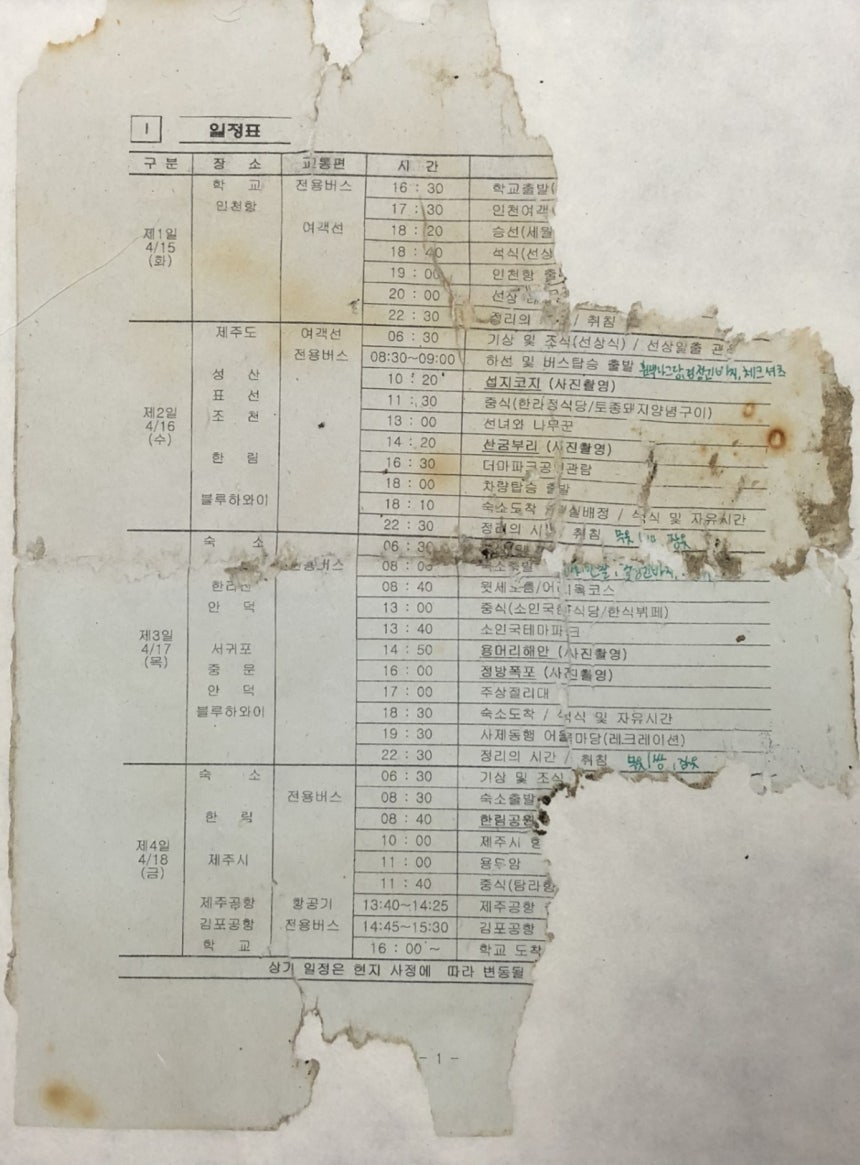 I 일정표
구 분 장 소 교통편 시 간
학 교 전용버스 16 : 30 학교출발(
인천항 17 : 30 인천여객
여객선 18 : 20 승선(세월
제1일
4/15
(화)
18 : 40 석식(선상
19 : 00 인천항 출
20 : 00 선상
22 : 30 정리의 / 취침
제주도 여객선 06 : 30 기상 및 조식(선상식) / 선상일출 관
전용버스 08:30~09:00 하선 및 버스탑승 출발
성 산 10 : 20 섭지코지 (사진촬영)
표 선 11 : 30 중식(한라정식당/토종돼지양념구이)
제2일
4/16
(수)
조 천 13 : 00 선녀와 나무꾼
14 : 20 산굼부리 (사진촬영)
한 림 16 : 30 더마파크공연관람
18 : 00 차량탑승 출발
블루하와이 18 : 10 숙소도착 / 실배정 / 석식 및 자유시간
22 : 30 정리의 시 취침 잠옷
숙 소 06 : 30
전용버스 08 : 00 숙소출발
한라산 08 : 40 윗세오름/어리목코스
안 덕 13 : 00 중식(소인국 식당/한식뷔페)
13 : 40 소인국테마파크
제3일
4/17
(목)
서귀포 14 : 50 용머리해안 (사진촬영)
중 문 16 : 00 정방폭포 (사진촬영)
안 덕 17 : 00 주상절리대
블루하와이 18 : 30 숙소도착 / 석식 및 자유시간
19 : 30 사제동행 어울마당(레크레이션)
22 : 30 정리의 시간 / 취침 잠옷
숙 소 06 : 30 기상 및 조식
전용버스 08 : 30 숙소출발
한 림 08 : 40 한림공원
제4일
4/18
(금)
10 : 00 제주시
제주시 11 : 00 용두암
11 : 40 중식(탐라
제주공항 항공기 13:40~14:25 제주공항
김포공항 전용버스 14:45~15:30 김포공항
학 교 16 : 00 ~ 학교 도착
상기 일정은 현지 사정에 따라 변동될
- 1 -